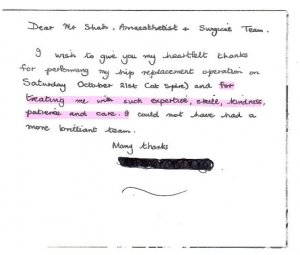 Dear Mr Shah, Anaesthetist + Surgical Team.
I wish to give you my heartfelt thanks
for performing my hip replacement operation on
Saturday October 21st (at Spire) and for
treating me with such expertise, skill, kindness,
patience and care. I could not have had a
more brilliant team.
Many thanks